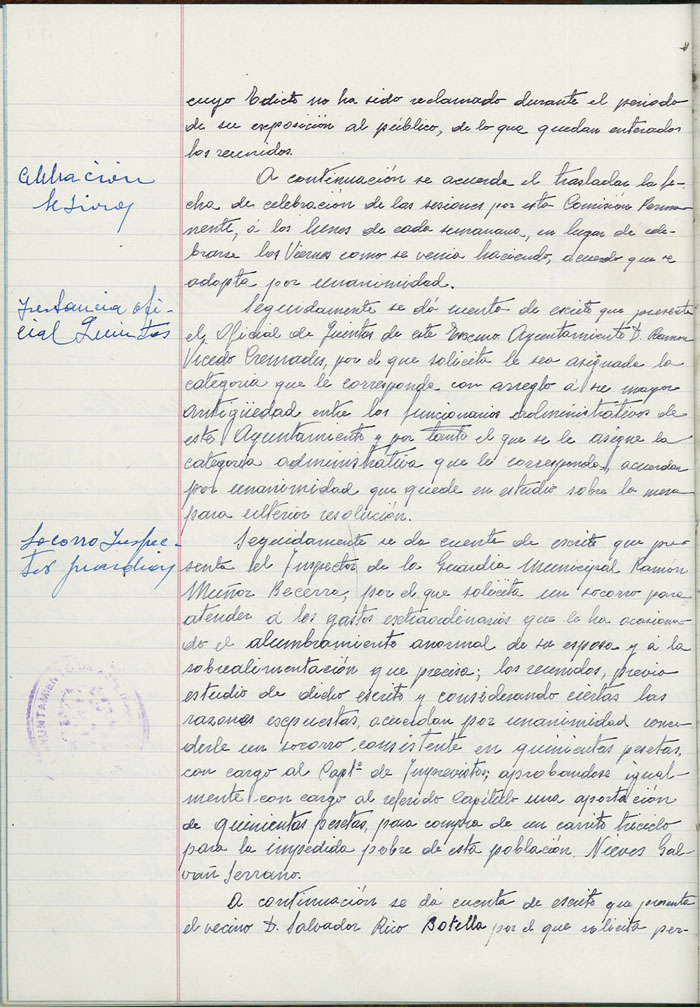 cuyo Edicto no ha sido reclamado durante el periodo
de su exposición al público, de lo que quedan enterados
los reunidos.
Celebración
sesiones
A continuación se acuerda el trasladar la fe-
cha de celebración de las sesiones por esta Comisión Perma-
nente, á los lunes de cada semana, en lugar de cele-
brarse los Viernes como se venia haciendo, acuerdo que se
adopta por unanimidad.
Instancia ofi-
cial Quintas
Seguidamente se dá cuenta de escrito que presenta
el Oficial de Quintas de este Excmo. Ayuntamiento D. Ramon
Vicedo Cremades, por el que solicita le sea asignada la
categoria que le corresponda con arreglo á su mayor
antigüedad entre los funcionarios administrativos de
este Ayuntamiento y por tanto el que se le asigne la
categoria administrativa que le corresponda, acuerdan
por unanimidad que quede en estudio sobre la mesa
para ulterior resolución.
Socorro Inspec-
tor guardias
Seguidamente se da cuenta de escrito que pre-
senta el Inspector de la Guardia Municipal Ramón
Muñoz Becerra, por el que solicita un socorro para
atender á los gastos extraordinarios que le ha ocasiona-
do el alumbramiento anormal de su esposa y á la
sobrealimentación que precisa; los reunidos, previo
estudio de dicho escrito y considerando ciertas las
razones expuestas, acuerdan por unanimidad conce-
derle un socorro, consistente en quinientas pesetas,
con cargo al Captº. de Imprevistos; aprobandose igual-
mente con cargo al referido Capitulo una aportación
de quinientas pesetas, para compra de un carrito triciclo
para la impedida pobre de esta población Nieves Gal-
vañ Serrano.
AYUNTAMIENTO DE
A continuación se dá cuenta de escrito que presenta
el vecino D. Salvador Rico Botella por el que solicita per-